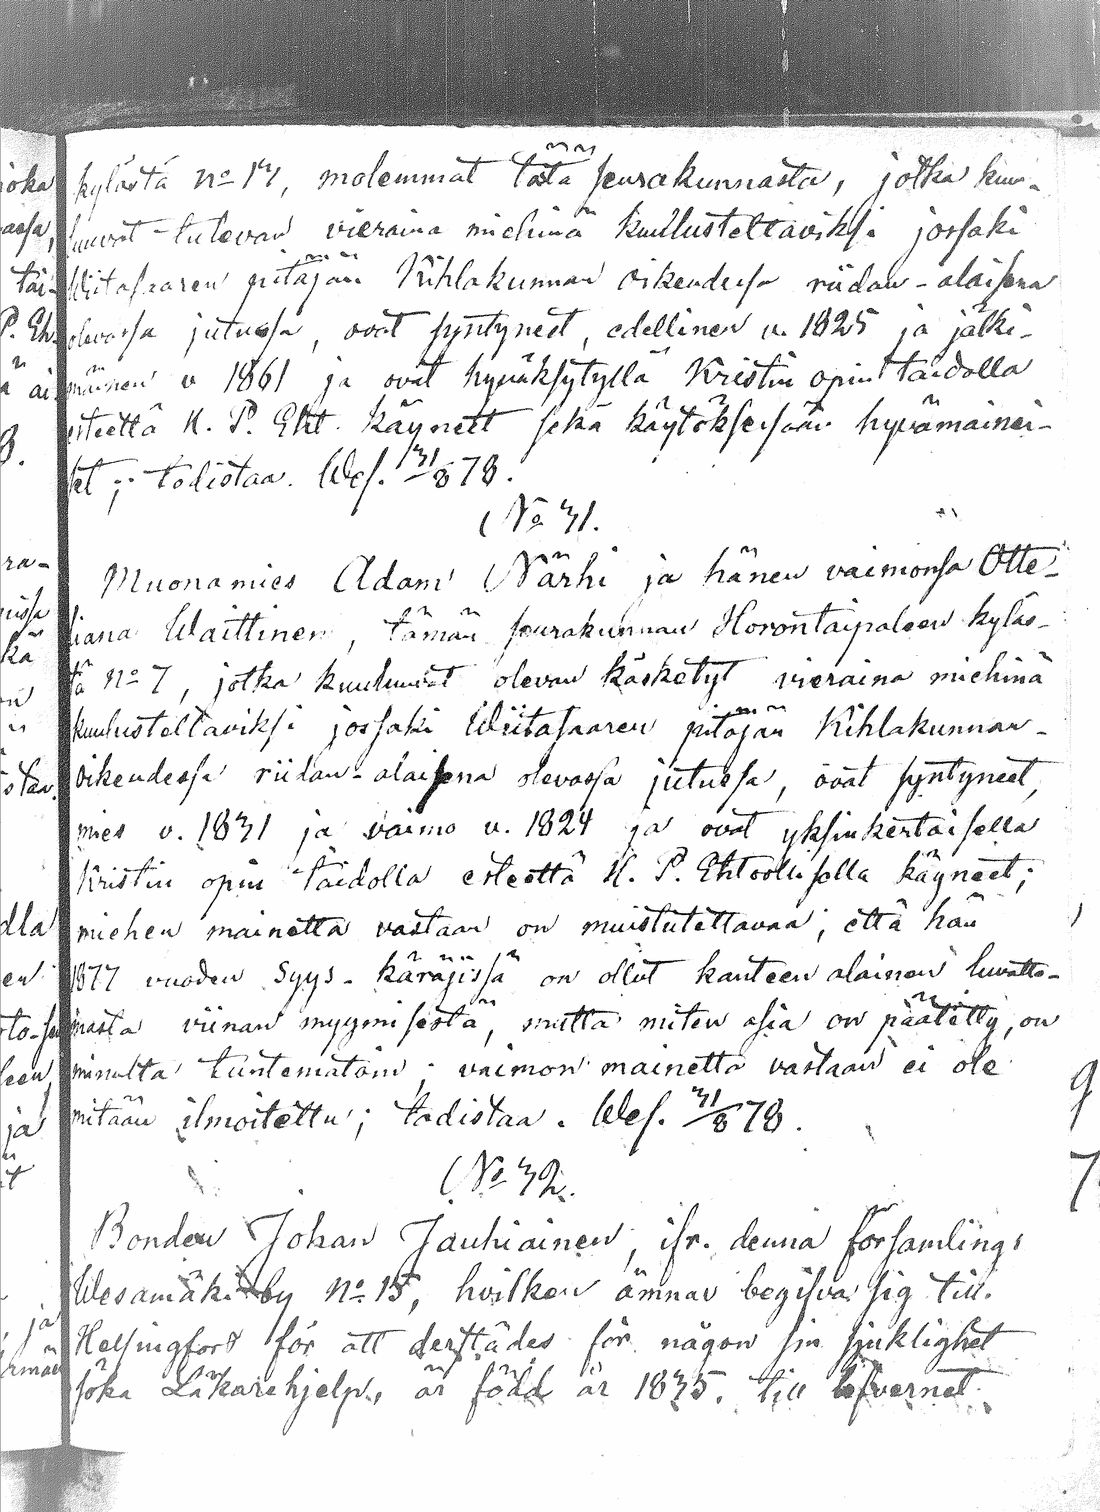 kylästä No 17, molemmat tästä seurakunnasta, jotka kuu-
luvat tulevan vieraina miehinä kuulusteltaviksi jossaki
Wiitasaaren pitäjän Kihlakunnan oikeudessa riidan-alaisena
olevassa jutussa, ovat syntyneet, edellinen v. 1825 ja jälki-
mäinen v 1861 ja ovat hyväksytyllä Kristin opin taidolla
esteettä H. P. Eht. käyneet sekä käytöksessään hyvämainei-
set; todistaa. Wes. 31/8 78.
No 31.
Muonamies Adam Närhi ja hänen vaimonsa Otte-
liana Waittinen, tämän seurakunnan Horontaipaleen kyläs-
tä No 7, jotka kuuluvat olevan käsketyt vieraina miehinä
kuulusteltaviksi jossaki Wiitasaaren pitäjän Kihlakunnan-
oikeudessa riidan-alaisena olevassa jutussa, ovat syntyneet,
mies v. 1831 ja vaimo v. 1824 ja ovat yksinkertaisella
Kristin opin taidolla esteettä H. P. Ehtoolisella käyneet;
miehen mainetta vastaan on muistutettavaa; että hän
1877 vuoden Syys-käräjissä on ollut kanteen alainen luvatto-
masta viinan myymisestä, mutta miten asia on päätetty, on
minulta tuntematoin; vaimon mainetta vastaan ei ole
mitään ilmoitettu; todistaa. Wes. 31/8 78.
No 32.
Bonden Johan Jauhiainen, ifr. denna församlings
Wesamäki by No 15, hvilken ämnar begifva sig till
Helsingfors för att derstädes för någon sin sjuklighet
söka Läkarehjelp, är född år 1835. till lefvernet